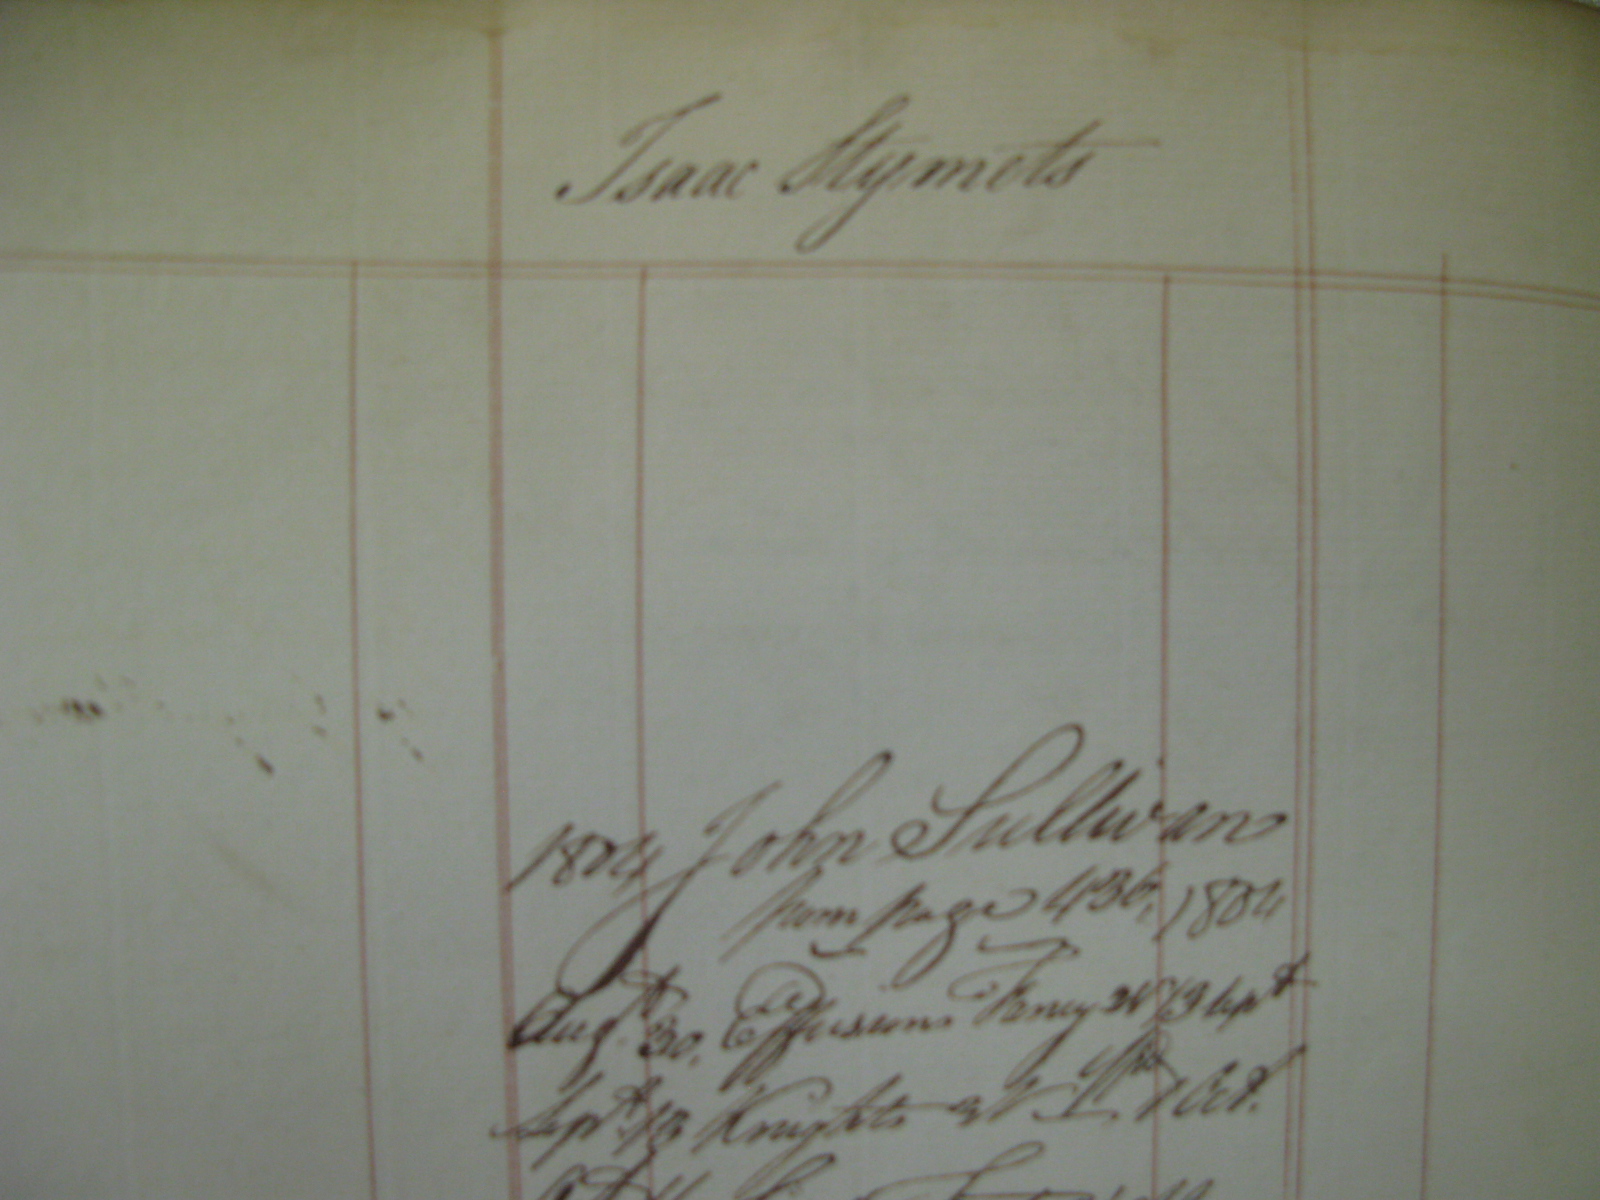 Isaac Stymets
1804 John Sullivan
from page 436, 1804
Augt. 30, Effusions Fancy 2V 13 Sept
Sept. 13 Knights 2V 1 Oct.